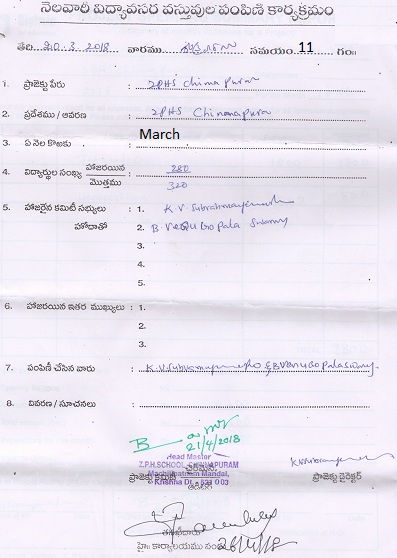 నెలవారీ విద్యావసర వస్తువుల పంపిణి కార్యక్రమం
తేది 30.3.2018 వారము శుక్రవారం సమయం 11 గం॥
1. ప్రాజెక్టు పేరు : ZPHS China Puram
2. ప్రదేశము / ఆవరణ : ZPHS Chinnapuram
3. ఏ నెల కొఱకు : March
4. విద్యార్థుల సంఖ్య హాజరయిన : 280
మొత్తము 320
5. హాజరైన కమిటీ సభ్యులు : 1. K.V. Subramanyam
హోదాతో 2. B. Venu Gopala Swamy
3.
4.
5.
6. హాజరయిన ఇతర ముఖ్యులు : 1.
2.
3.
7. పంపిణీ చేసిన వారు : K.V. Subramanyam & B. Venu Gopala Swamy
8. వివరణ / సూచనలు :
21/4/2018
Head Master
Z.P.H.SCHOOL, CHINNAPURAM
Machilipatnam Mandal,
Krishna Dt. - 521 003
ప్రాజెక్టు కమిటీ ఛైర్మన్ ప్రాజెక్టు డైరెక్టర్
ఆడిటర్
హె॥ కార్యాలయము